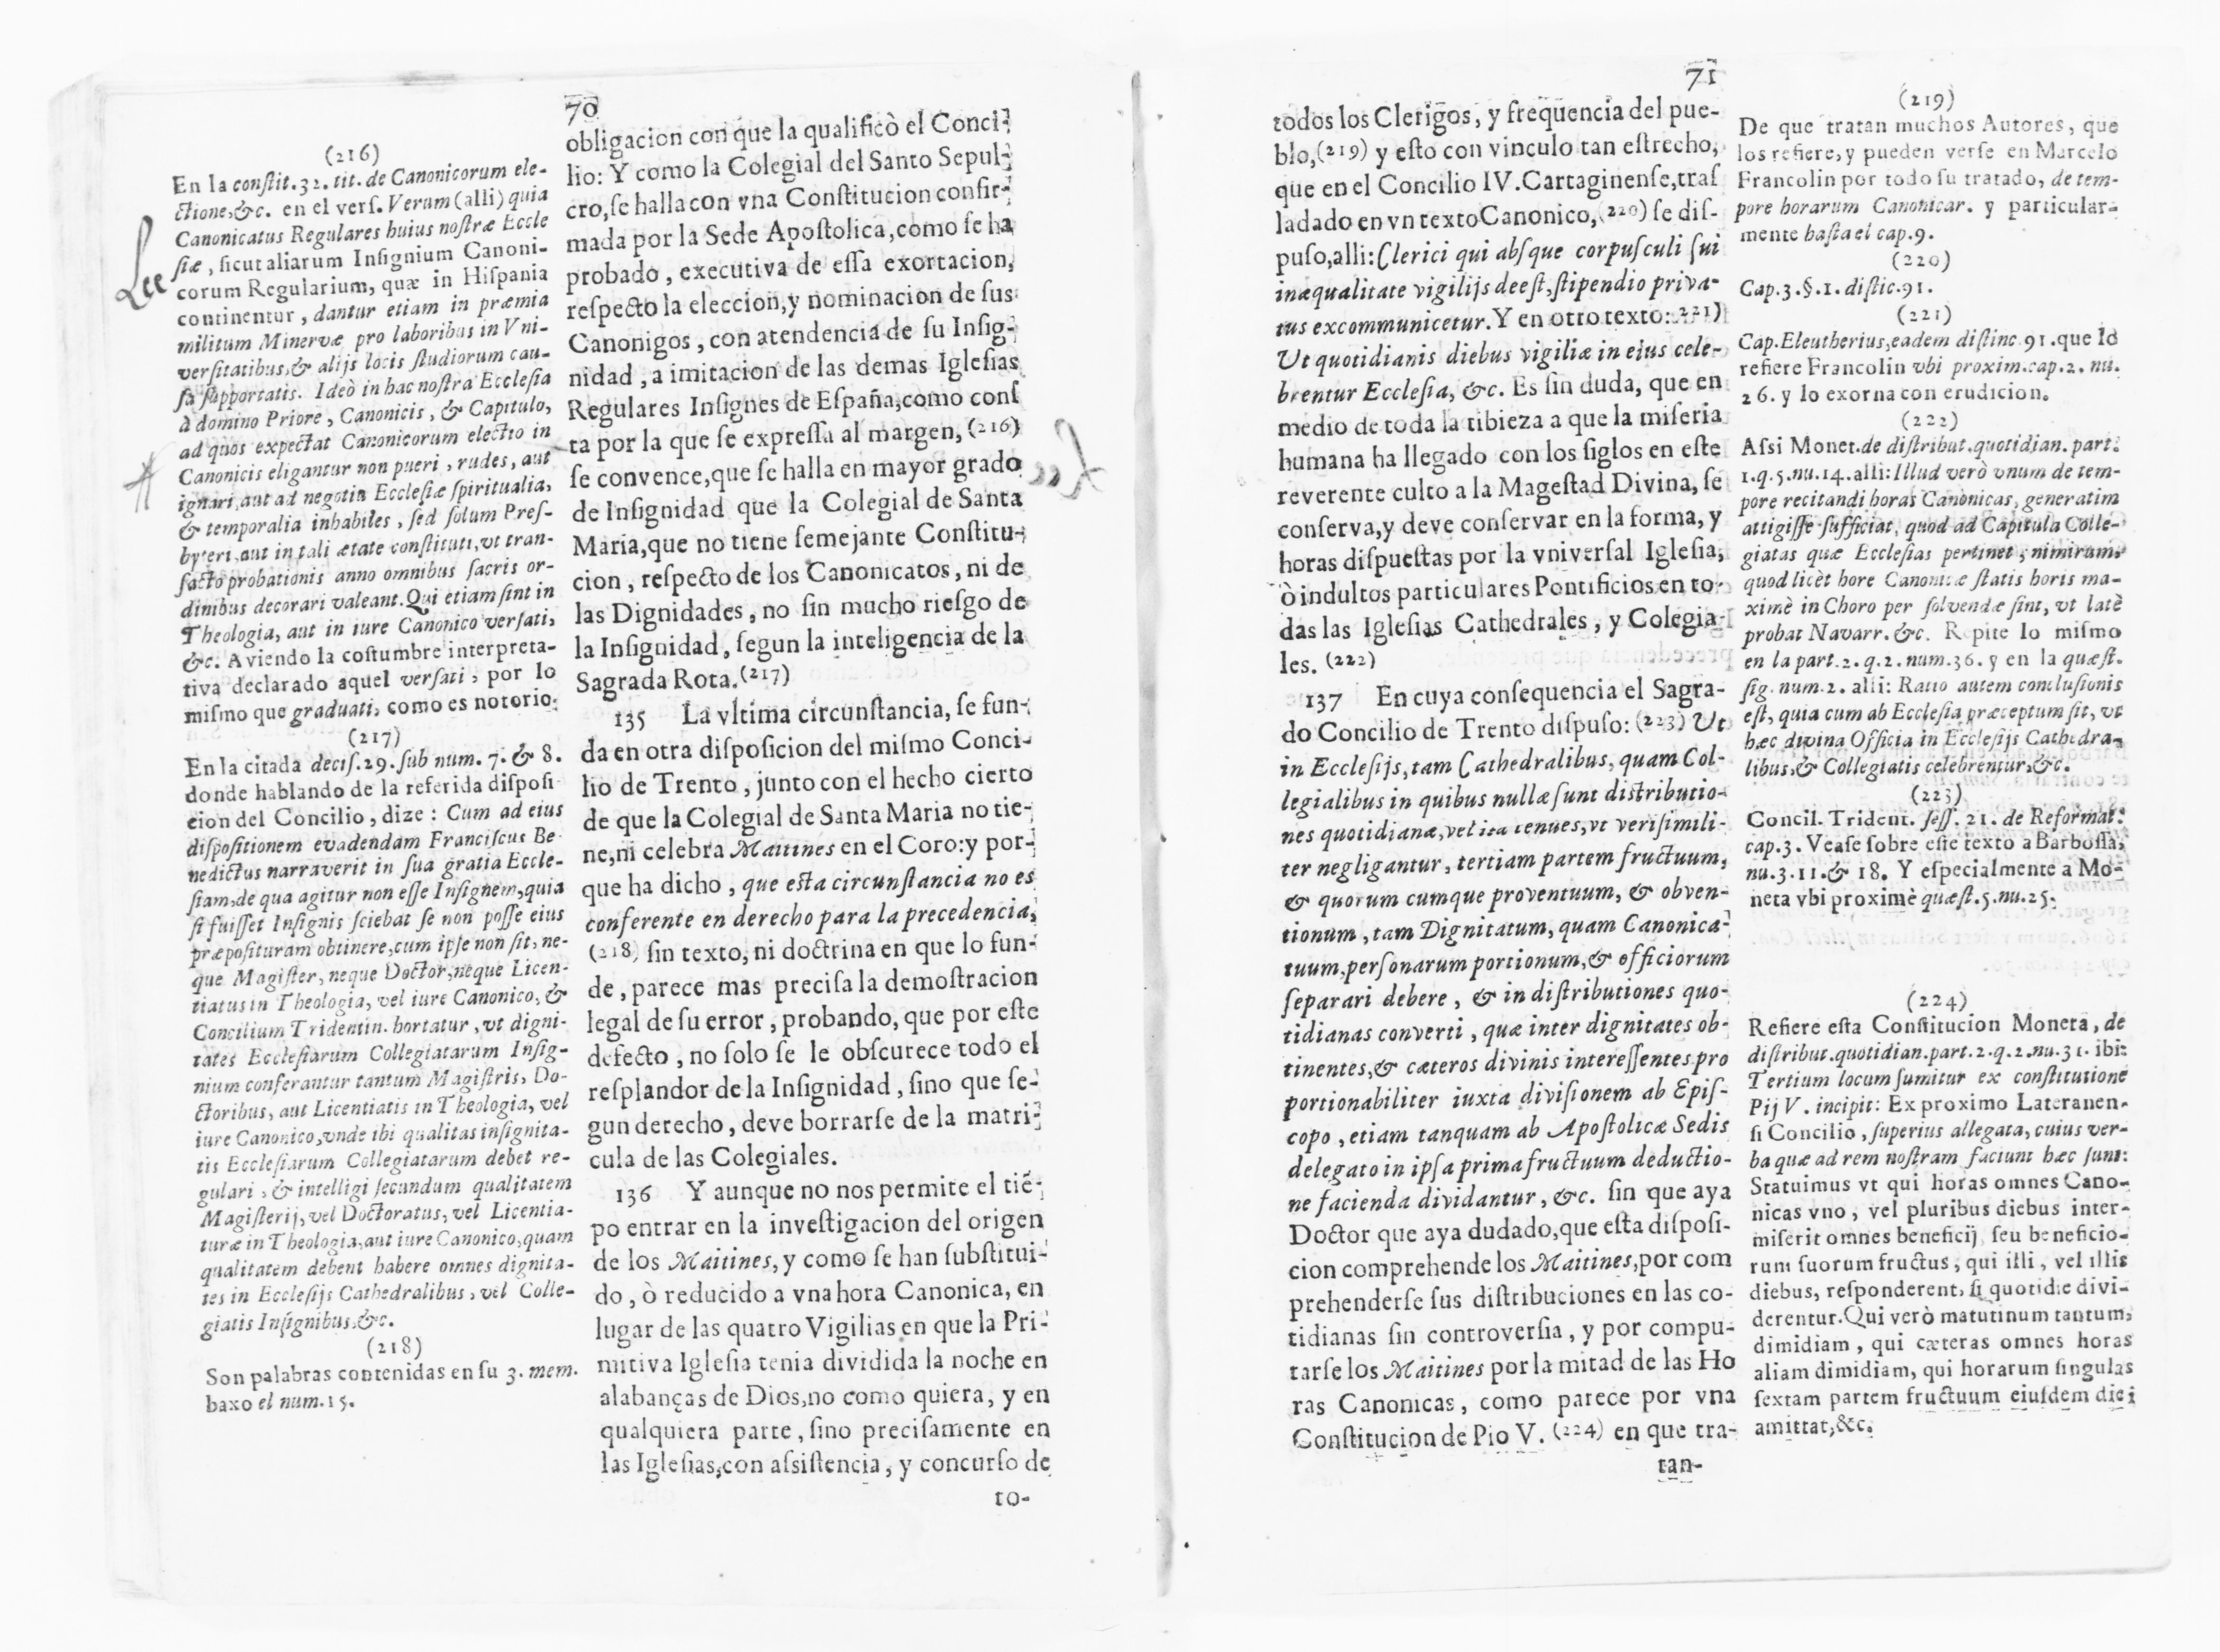 70
(216)
En la conſtit. 32. tit. de Canonicorum ele-
ctione, &c. en el verſ. Verum (alli) quia
Canonicatus Regulares huius noſtræ Eccle
ſiæ, ſicut aliarum Inſignium Canoni-
corum Regularium, quæ in Hiſpania
continentur, dantur etiam in præmia
militum Minervæ pro laboribus in Vni-
verſitatibus, & alijs locis ſtudiorum cau-
ſa ſupportatis. Ideò in hac noſtra Eccleſia
à domino Priore, Canonicis, & Capitulo,
ad quos expectat Canonicorum electio in
Canonicis eligantur non pueri, rudes, aut
ignari, aut ad negotia Eccleſiæ ſpiritualia,
& temporalia inhabiles, ſed ſolum Preſ-
byteri, aut in tali ætate conſtituti, vt tran-
ſacto probationis anno omnibus ſacris or-
dinibus decorari valeant. Qui etiam ſint in
Theologia, aut in iure Canonico verſati,
&c. Aviendo la coſtumbre interpreta-
tiva declarado aquel verſati, por lo
miſmo que graduati, como es notorio.
(217)
En la citada deciſ. 29. ſub num. 7. & 8.
donde hablando de la referida diſpoſi
cion del Concilio, dize: Cum ad eius
diſpoſitionem evadendam Franciſcus Be
nedictus narraverit in ſua gratia Eccle-
ſiam, de qua agitur non eſſe Inſignem, quia
ſi fuiſſet Inſignis ſciebat ſe non poſſe eius
præpoſituram obtinere, cum ipſe non ſit, ne-
que Magiſter, neque Doctor, neque Licen-
tiatus in Theologia, vel iure Canonico, &
Concilium Tridentin. hortatur, vt digni-
tates Eccleſiarum Collegiatarum Inſig-
nium conferantur tantum Magiſtris, Do-
ctoribus, aut Licentiatis in Theologia, vel
iure Canonico, vnde ibi qualitas inſignita-
tis Eccleſiarum Collegiatarum debet re-
gulari, & intelligi ſecundum qualitatem
Magiſterij, vel Doctoratus, vel Licentia-
turæ in Theologia, aut iure Canonico, quam
qualitatem debent habere omnes dignita-
tes in Eccleſijs Cathedralibus, vel Colle-
giatis Inſignibus, &c.
(218)
Son palabras contenidas en ſu 3. mem.
baxo el num. 15.
Lee
obligacion con que la qualificò el Conci-
lio: Y como la Colegial del Santo Sepul-
cro, ſe halla con vna Conſtitucion confir-
mada por la Sede Apoſtolica, como ſe ha
probado, executiva de eſſa exortacion,
reſpecto la eleccion, y nominacion de ſus
Canonigos, con atendencia de ſu Inſig-
nidad, a imitacion de las demas Igleſias
Regulares Inſignes de Eſpaña, como conſ
ta por la que ſe expreſſa al margen, (216)
ſe convence, que ſe halla en mayor grado
de Inſignidad que la Colegial de Santa
Maria, que no tiene ſemejante Conſtitu-
cion, reſpecto de los Canonicatos, ni de
las Dignidades, no ſin mucho rieſgo de
la Inſignidad, ſegun la inteligencia de la
Sagrada Rota. (217)
135 La vltima circunſtancia, ſe fun-
da en otra diſpoſicion del miſmo Conci-
lio de Trento, junto con el hecho cierto
de que la Colegial de Santa Maria no tie-
ne, ni celebra Maitines en el Coro: y por-
que ha dicho, que eſta circunſtancia no es
conferente en derecho para la precedencia,
(218) ſin texto, ni doctrina en que lo fun-
de, parece mas preciſa la demoſtracion
legal de ſu error, probando, que por eſte
defecto, no ſolo ſe le obſcurece todo el
reſplandor de la Inſignidad, ſino que ſe-
gun derecho, deve borrarſe de la matri-
cula de las Colegiales.
136 Y aunque no nos permite el tiẽ-
po entrar en la inveſtigacion del origen
de los Maitines, y como ſe han ſubſtitui-
do, ò reducido a vna hora Canonica, en
lugar de las quatro Vigilias en que la Pri-
mitiva Igleſia tenia dividida la noche en
alabanças de Dios, no como quiera, y en
qualquiera parte, ſino preciſamente en
las Igleſias, con aſsiſtencia, y concurſo de
to-
71
todos los Clerigos, y frequencia del pue-
blo, (219) y eſto con vinculo tan eſtrecho,
que en el Concilio IV. Cartaginenſe, traſ
ladado en vn texto Canonico, (220) ſe diſ-
puſo, alli: Clerici qui abſque corpuſculi ſui
inæqualitate vigilijs deeſt, ſtipendio priva-
tus excommunicetur. Y en otro texto: 221)
Ut quotidianis diebus vigiliæ in eius cele-
brentur Eccleſia, &c. Es ſin duda, que en
medio de toda la tibieza a que la miſeria
humana ha llegado con los ſiglos en eſte
reverente culto a la Mageſtad Divina, ſe
conſerva, y deve conſervar en la forma, y
horas diſpueſtas por la vniverſal Igleſia,
ò indultos particulares Pontificios en to-
das las Igleſias Cathedrales, y Colegia-
les. (222)
137 En cuya conſequencia el Sagra-
do Concilio de Trento diſpuſo: (223) Ut
in Eccleſijs, tam Cathedralibus, quam Col-
legialibus in quibus nullæ ſunt diſtributio-
nes quotidianæ, vel ita tenues, vt veriſimili-
ter negligantur, tertiam partem fructuum,
& quorum cumque proventuum, & obven-
tionum, tam Dignitatum, quam Canonica-
tuum, perſonarum portionum, & officiorum
ſeparari debere, & in diſtributiones quo-
tidianas converti, quæ inter dignitates ob-
tinentes, & cæteros divinis intereſſentes pro
portionabiliter iuxta diviſionem ab Epiſ-
copo, etiam tanquam ab Apoſtolicæ Sedis
delegato in ipſa prima fructuum deductio-
ne facienda dividantur, &c. ſin que aya
Doctor que aya dudado, que eſta diſpoſi-
cion comprehende los Maitines, por com
prehenderſe ſus diſtribuciones en las co-
tidianas ſin controverſia, y por compu-
tarſe los Maitines por la mitad de las Ho
ras Canonicas, como parece por vna
Conſtitucion de Pio V. (224) en que tra-
tan-
(219)
De que tratan muchos Autores, que
los refiere, y pueden verſe en Marcelo
Francolin por todo ſu tratado, de tem-
pore horarum Canonicar. y particular-
mente haſta el cap. 9.
(220)
Cap. 3. §. 1. diſtic. 91.
(221)
Cap. Eleutherius, eadem diſtinc. 91. que lo
refiere Francolin vbi proxim. cap. 2. nu.
26. y lo exorna con erudicion.
(222)
Aſsi Monet. de diſtribut. quotidian. part.
1. q. 5. nu. 14. alli: Illud verò vnum de tem-
pore recitandi horas Canonicas, generatim
attigiſſe ſufficiat, quod ad Capitula Colle-
giatas quæ Eccleſias pertinet, nimirum.
quod licèt hore Canonicæ ſtatis horis ma-
ximè in Choro per ſolvendæ ſint, vt latè
probat Navarr. &c. Repite lo miſmo
en la part. 2. q. 2. num. 36. y en la quæſt.
ſig. num. 2. alli: Ratio autem concluſionis
eſt, quia cum ab Eccleſia præceptum ſit, vt
hæc divina Officia in Eccleſijs Cathedra-
libus, & Collegiatis celebrentur, &c.
(223)
Concil. Trident. ſeſſ. 21. de Reformat.
cap. 3. Veaſe ſobre eſte texto a Barboſſa,
nu. 3. 11. & 18. Y eſpecialmente a Mo-
neta vbi proximè quæſt. 5. nu. 25.
(224)
Refiere eſta Conſtitucion Moneta, de
diſtribut. quotidian. part. 2. q. 2. nu. 31. ibi:
Tertium locum ſumitur ex conſtitutione
Pij V. incipit: Ex proximo Lateranen-
ſi Concilio, ſuperius allegata, cuius ver-
ba quæ ad rem noſtram faciunt hæc ſunt:
Statuimus vt qui horas omnes Cano-
nicas vno, vel pluribus diebus inter-
miſerit omnes beneficij, ſeu beneficio-
rum ſuorum fructus, qui illi, vel illis
diebus, reſponderent, ſi quotidie divi-
derentur. Qui verò matutinum tantum,
dimidiam, qui cæteras omnes horas
aliam dimidiam, qui horarum ſingulas
ſextam partem fructuum eiuſdem diei
amittat, &c.